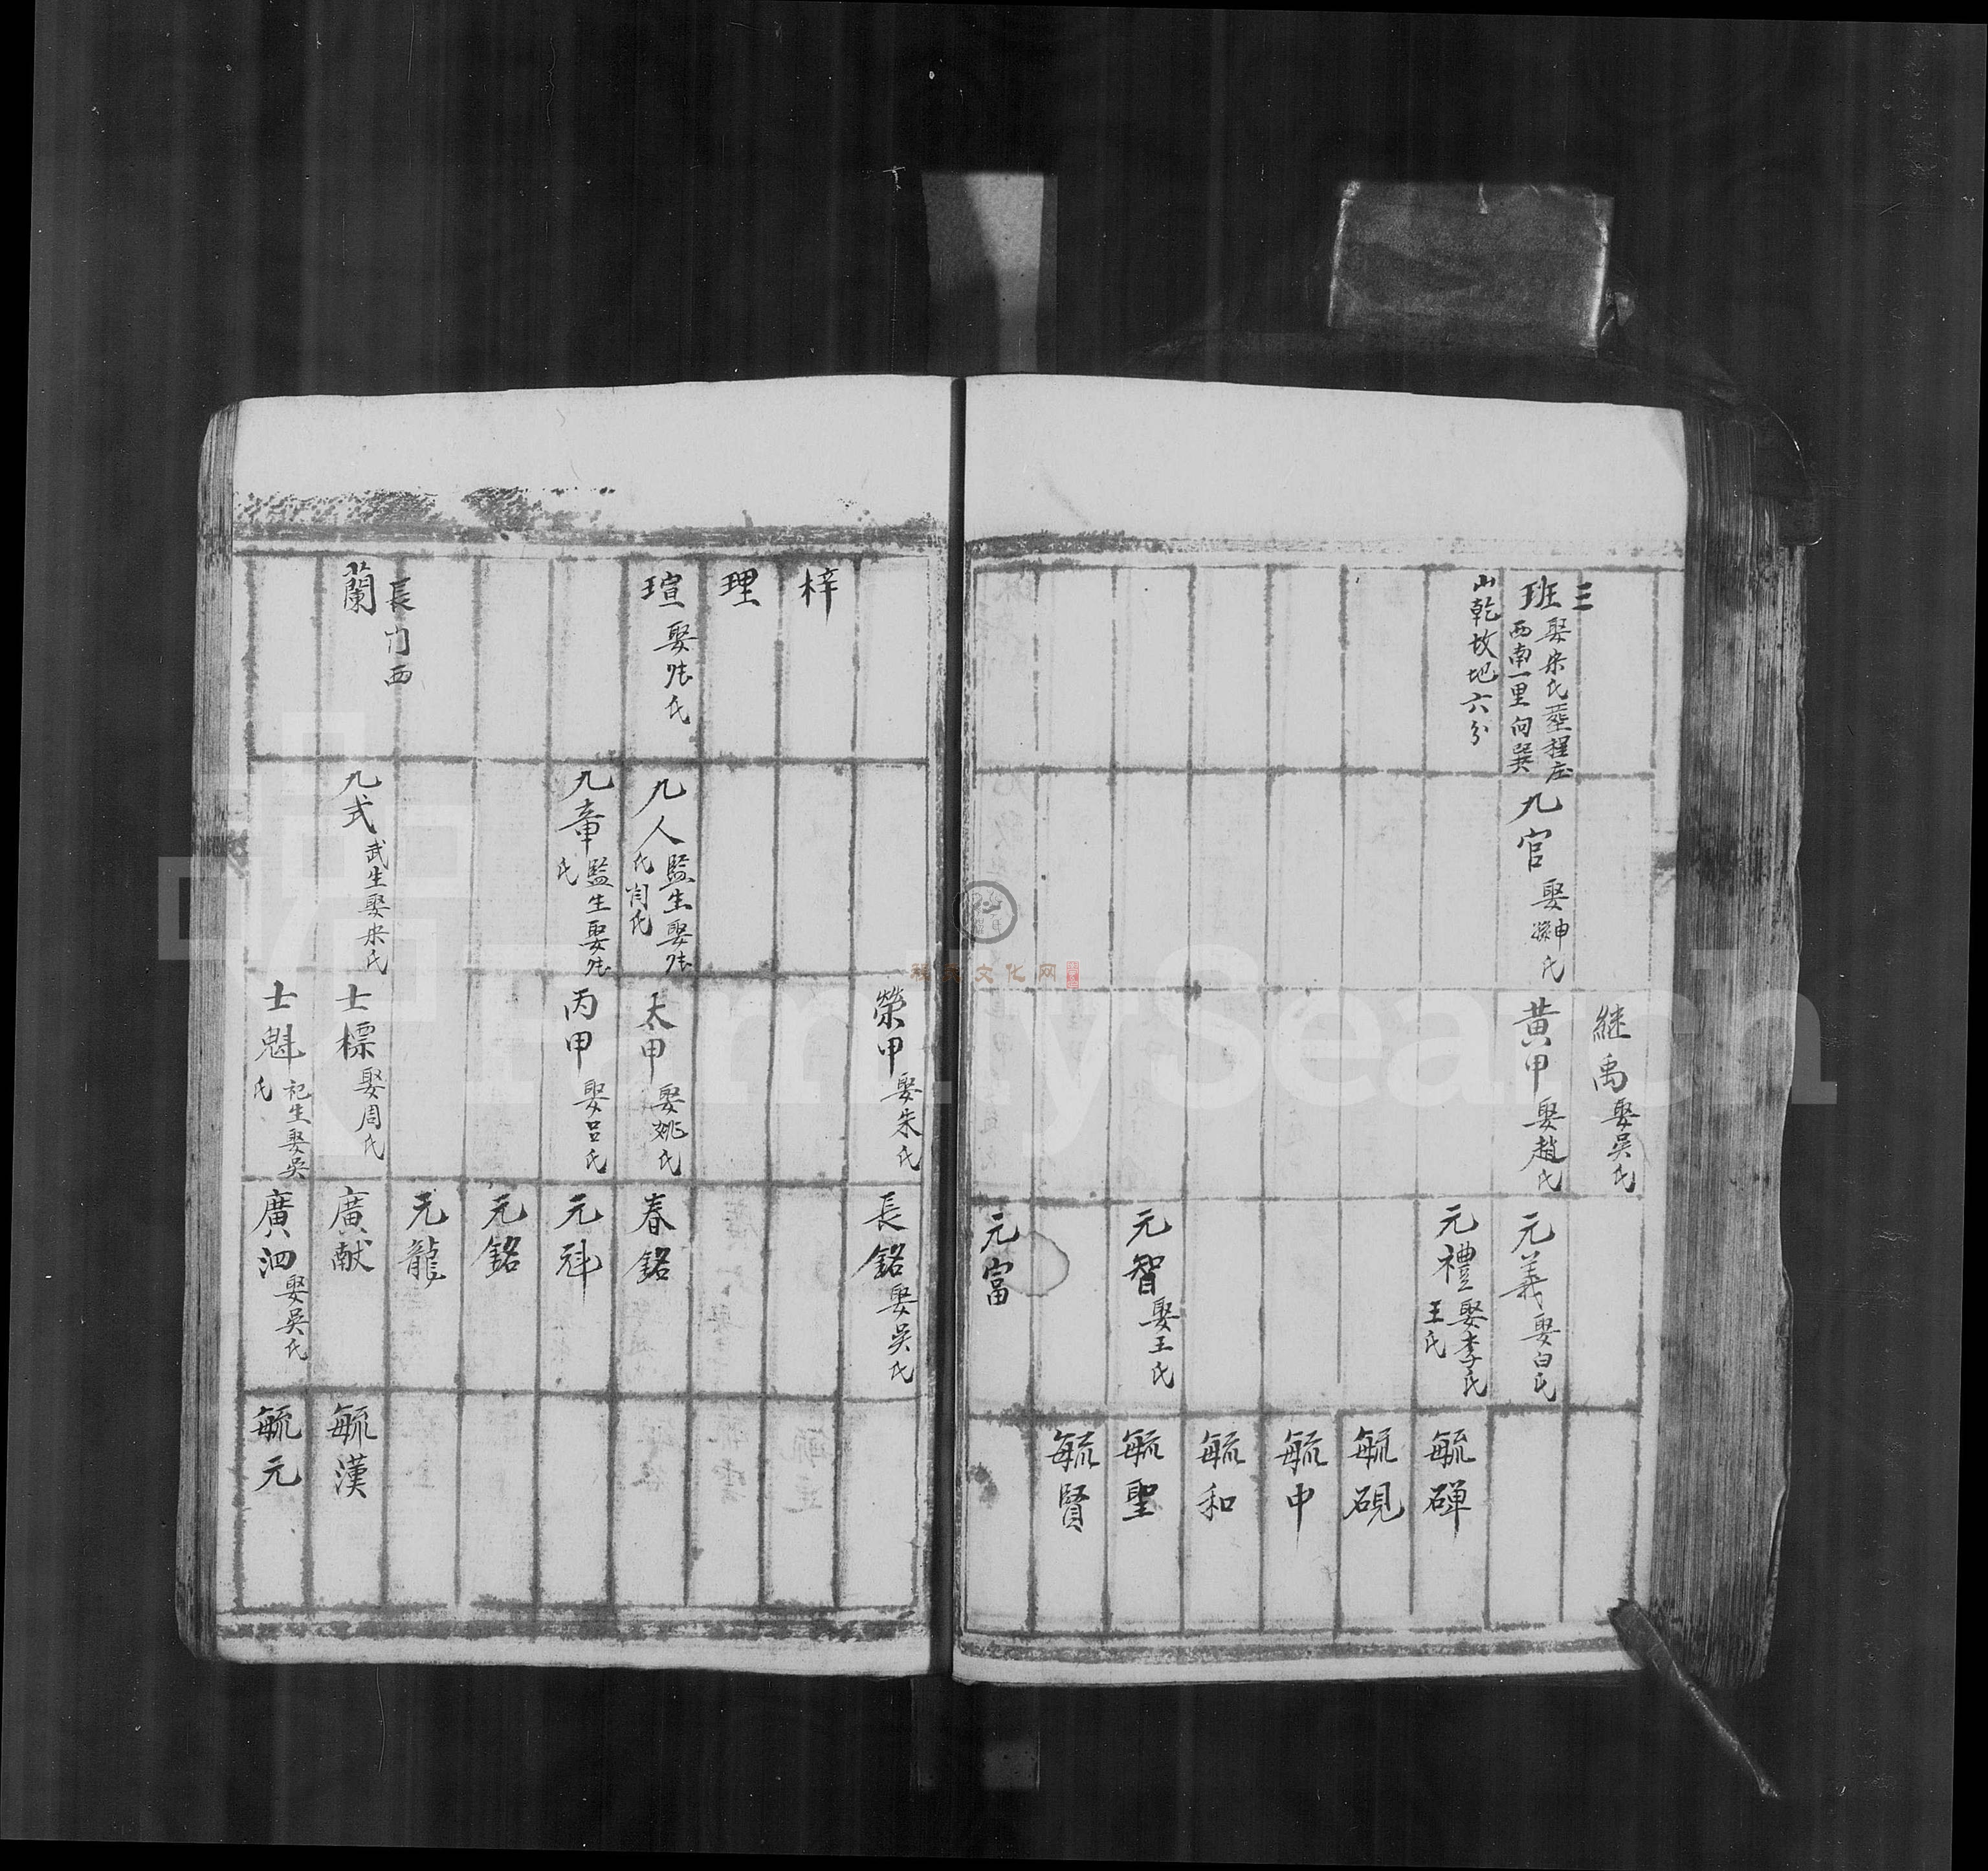 三
班 娶宋氏葬程庄
西南一里向巽
山乾坟地六分
九官 娶神氏
継禹 娶吳氏
黃甲 娶趙氏
元義 娶白氏
元禮 娶李氏
王氏
元智 娶王氏
元富
毓磾
毓硯
毓中
毓和
毓聖
毓賢
梓
理
瑄 娶陆氏
長门西
蘭
九人 監生娶陆
氏肖氏
九章 監生娶陆
氏
九式 武生娶宋氏
榮甲 娶朱氏
太甲 娶姚氏
丙甲 娶吕氏
士標 娶周氏
士魁 祀生娶吳
氏
長銘 娶吳氏
春銘
元魁
元銘
元龍
廣献
廣泗 娶吳氏
毓漢
毓元
FamilySearch